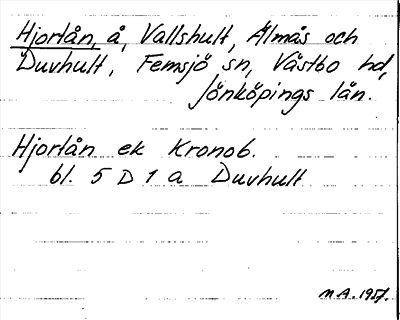 Hjortån, å, Vallshult, Älmås och
Duvhult, Femsjö sn, Västbo hd,
Jönköpings län.
Hjortån ek Kronob.
bl. 5 D 1 a Duvhult
M A. 1957.